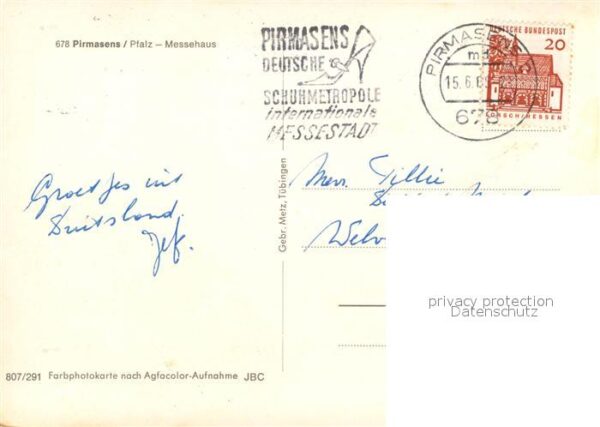 678 Pirmasens / Pfalz – Messehaus
PIRMASENS
DEUTSCHE
SCHUHMETROPOLE
internationale
MESSESTADT
PIRMASENS
15.6.6
678
DEUTSCHE BUNDESPOST
20
LORSCH/HESSEN
Groetjes uit
Duitsland.
Jef.
Gebr. Metz, Tübingen
Mevr. Tillie
807/291 Farbphotokarte nach Agfacolor-Aufnahme JBC
privacy protection
Datenschutz